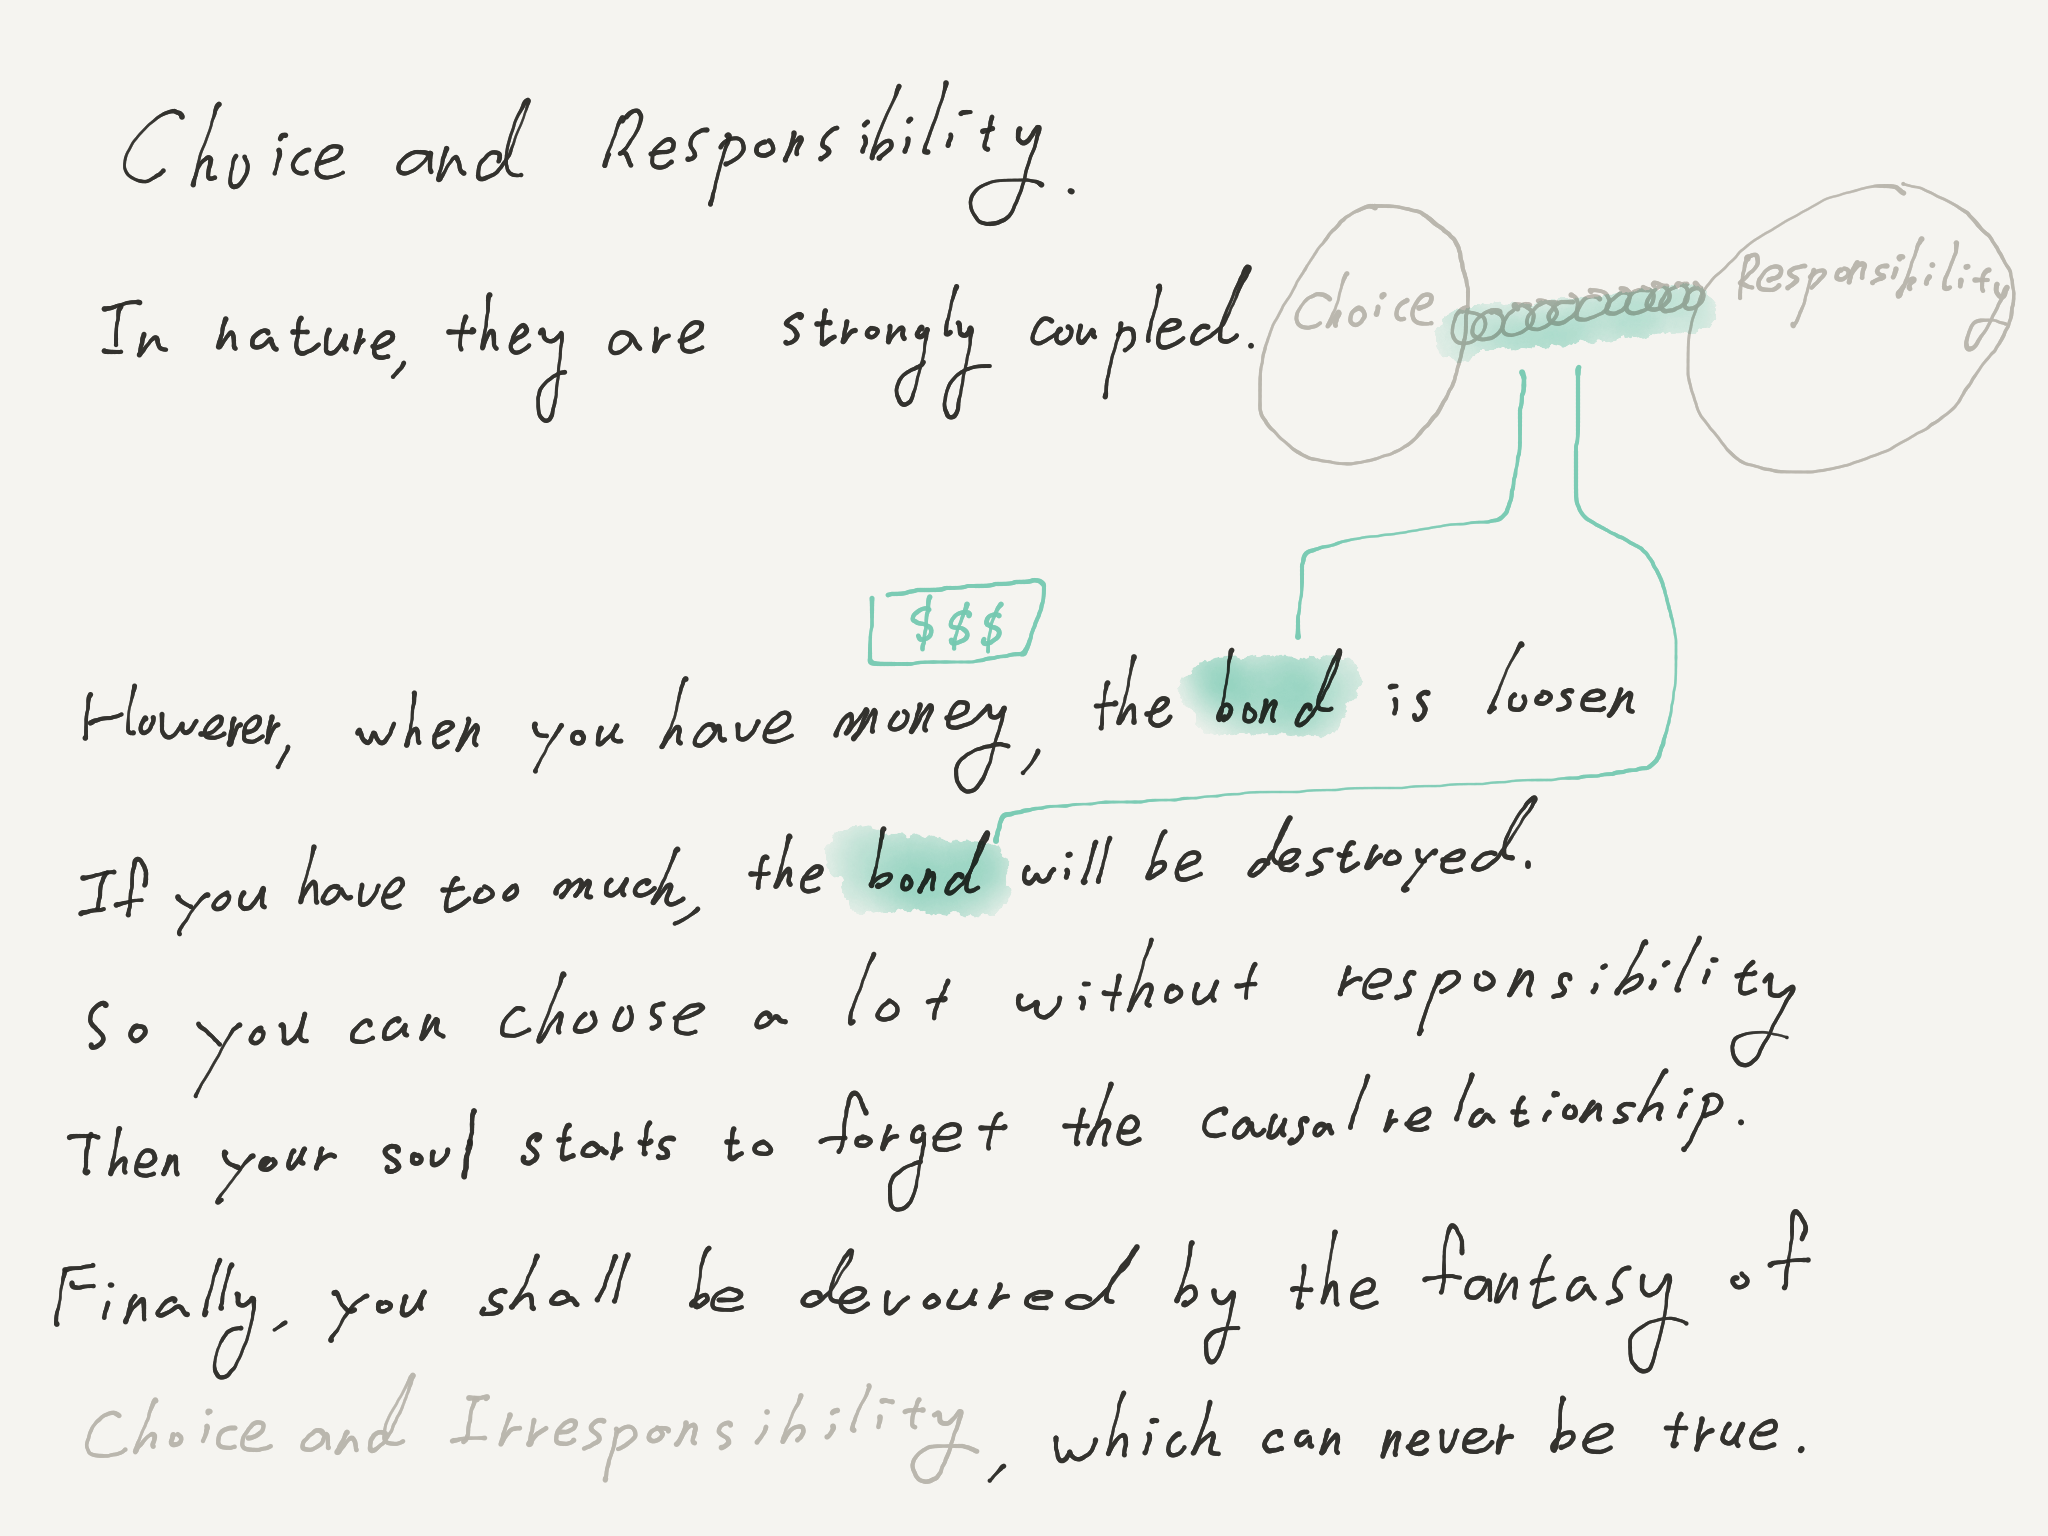 Choice and Responsibility.
In nature, they are strongly coupled.
Choice
Responsibility
$$$
However, when you have money, the bond is loosen
If you have too much, the bond will be destroyed.
So you can choose a lot without responsibility
Then your soul starts to forget the causal relationship.
Finally, you shall be devoured by the fantasy of
Choice and Irresponsibility, which can never be true.